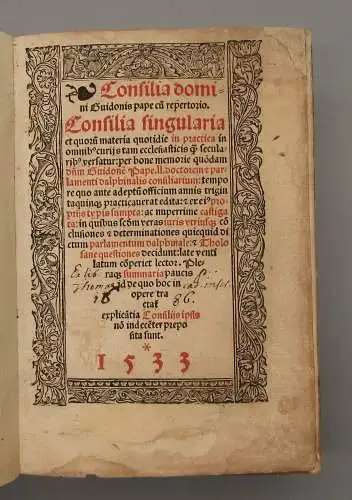 Consilia domi-
ni Guidonis pape cũ repertorio.
Consilia singularia
et quorũ materia quotidie in practica in
omnibꝰ curijs tam ecclesiasticis q̃ secula-
ribꝰ versatur: per bone memorie quõdam
dñm Guidonẽ Pape. ll. doctorem et par-
lamenti dalphinalis consiliarium: tempo
re quo ante adeptũ officium annis trigin
taquinqꝫ practicauerat edita: et ex ei⁹ pro-
prijs typis sumpta: ac nuperrime castiga
ta: in quibus scõm veras iuris vtriusqꝫ cõ
clusiones et determinationes quicquid di
ctum parlamentum dalphinale: et Tholo
sane questiones decidunt: late venti
latum cõperiet lector. Ple-
raqꝫ summaria paucis
id de quo hoc in
opere tra
ctat̃
explicãtia Consilijs ipsis
nõ indecẽter prepo
sita sunt.
Ex lib
Thomae
18
86.
1533